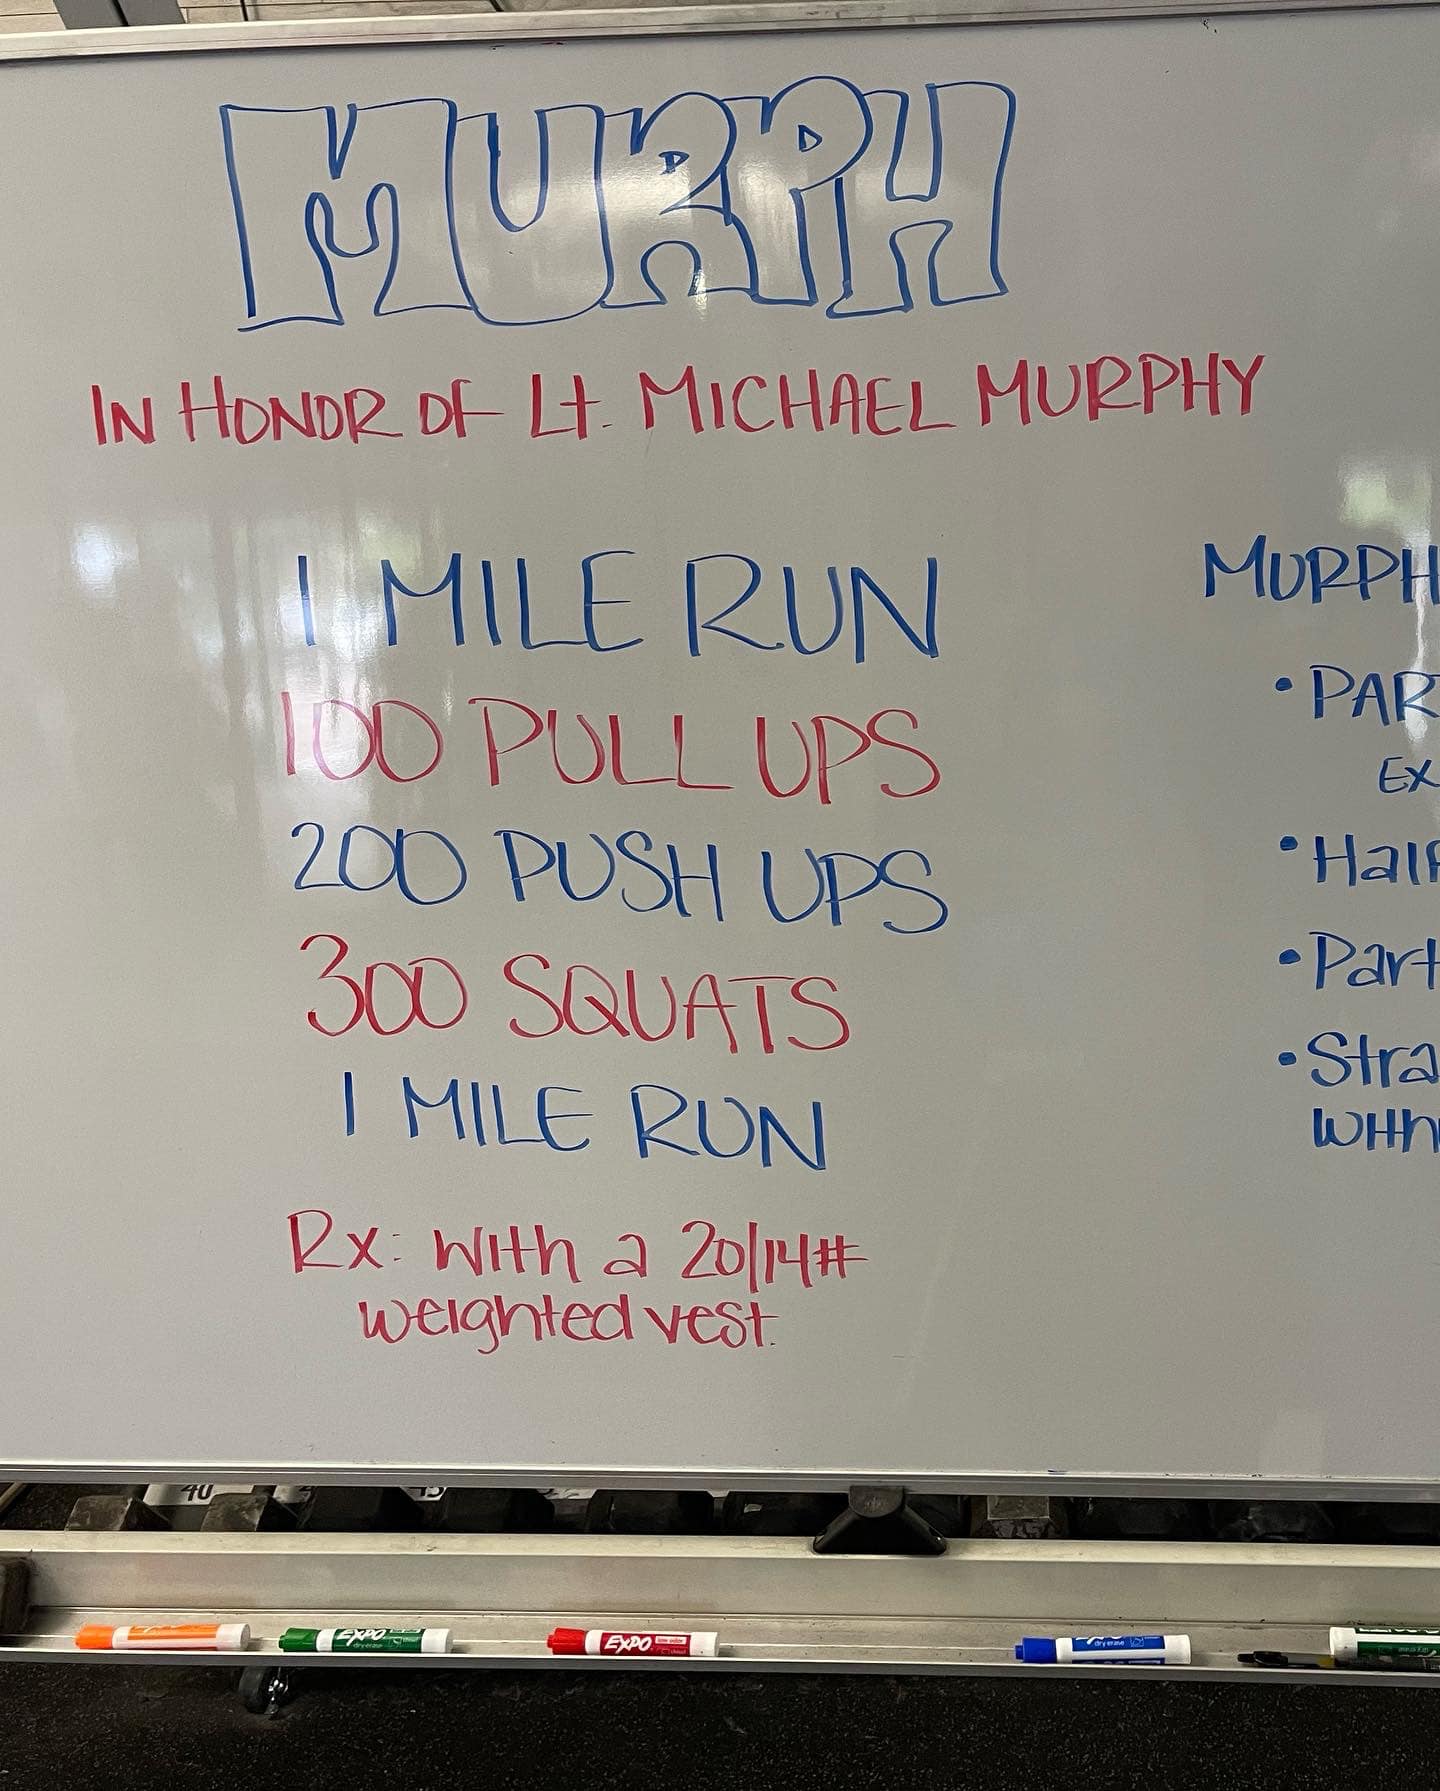 MURPH
IN HONOR OF Lt. MICHAEL MURPHY
1 MILE RUN
100 PULL UPS
200 PUSH UPS
300 SQUATS
1 MILE RUN
Rx: with a 20/14#
weighted vest.
MURPH
• PAR
EX
• Half
• Part
• Stra
with
40
45
EXPO
EXPO
dry erase
EXPO
dry erase